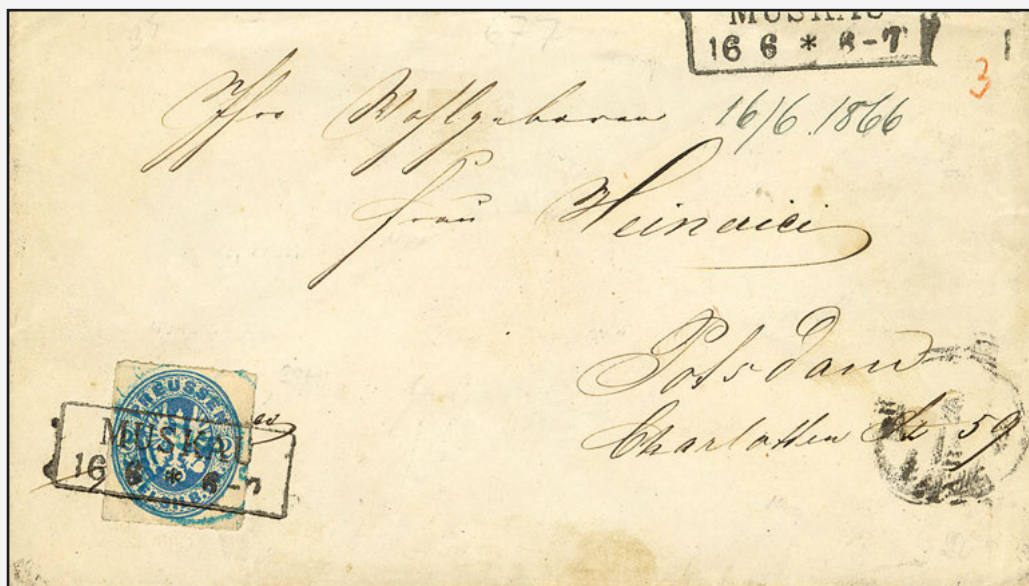 677
MUSKAU
16 6 * 6-7
3
Ihro Wohlgeboren 16/6. 1866
Frau Heinrici
Potsdam
Charlotten Str 59
PREUSSEN
2
MUSKAU
16 6 * 6-7